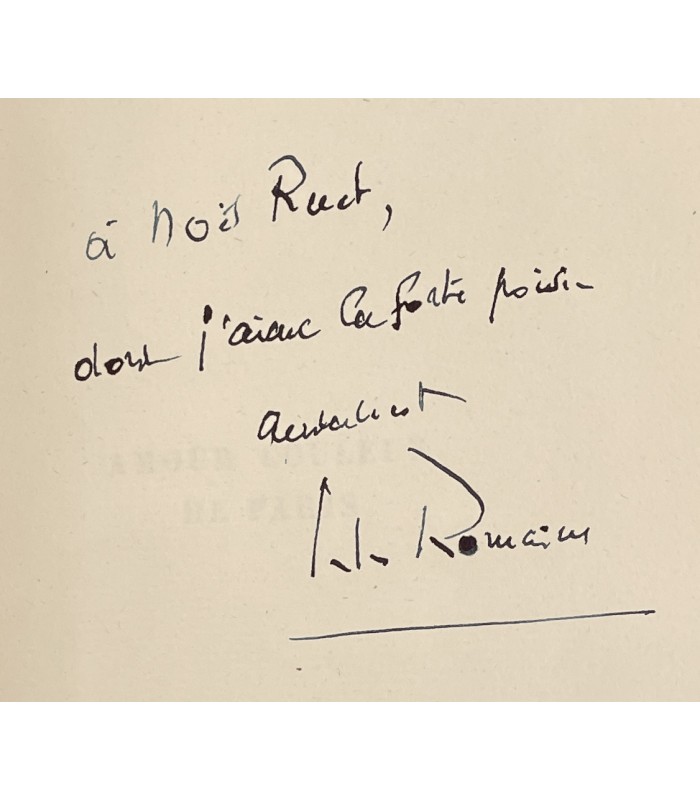 à Noël Ruet,
dont j'aime la forte poésie
amicalement
AMOUR COULEUR
DE PARIS
Jules Romains